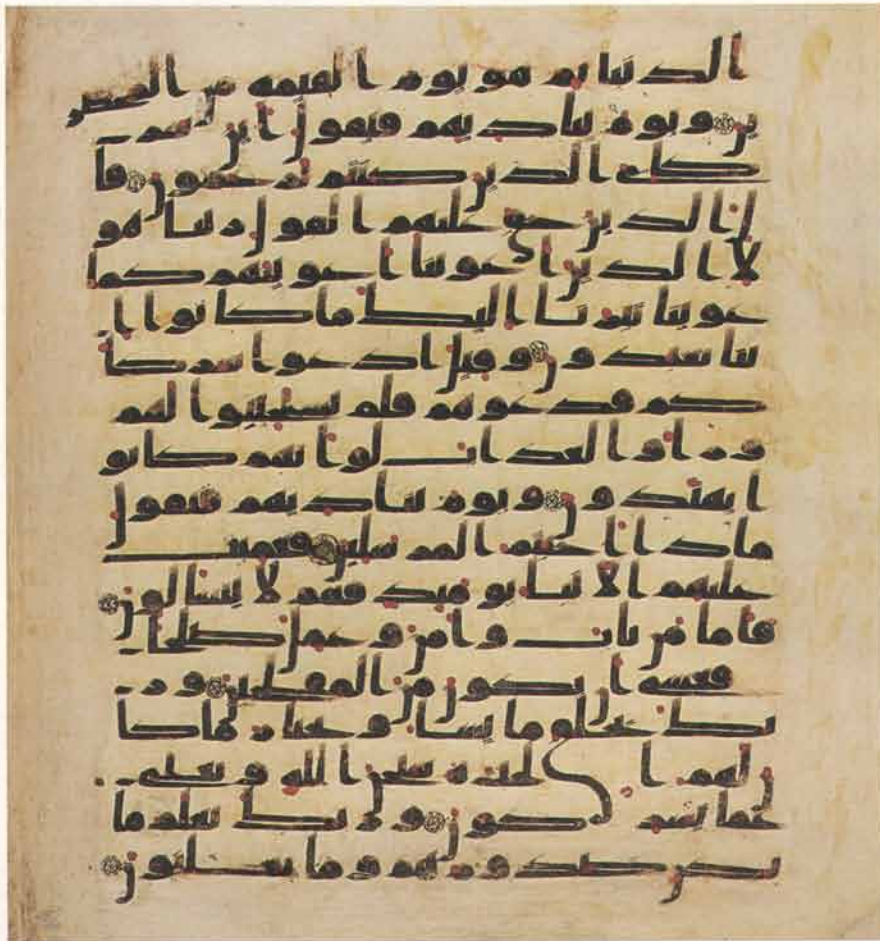 الدنيا ثم هو يوم القيمة من المحضر
ين ويوم يناديهم فيقول اين شر
كاى الذين كنتم تزعمون قا
ل الذين حق عليهم القول ربنا هو
لا الذين اغوينا اغوينهم كما
غوينا تبرانا اليك ما كانوا ا
ينا يعبدون وقيل ادعوا شركا
كم فدعوهم فلم يستجيبوا لهم
وراوا العذاب لو انهم كانو
ا يهتدون ويوم يناديهم فيقول
ماذا اجبتم المرسلين فعميت
عليهم الانبا يوميذ فهم لا يتسالون
فاما من تاب وامن وعمل صلحا
فعسى ان يكون من المفلحين ور
بك يخلق ما يشا ويختار ما كا
ن لهم الخيرة سبحن الله وتعلى
عما يشركون وربك يعلم ما
تكن صدورهم وما يعلنون